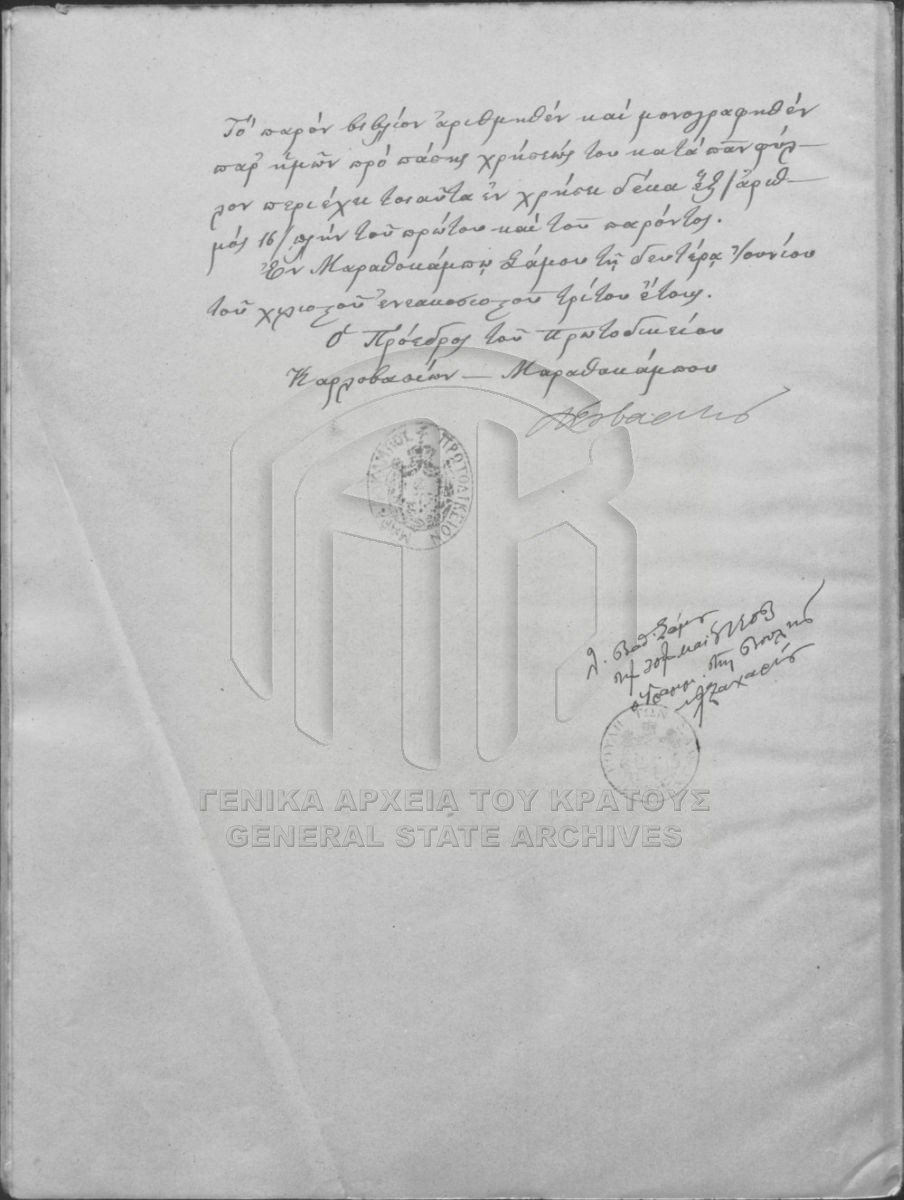 Τό παρόν βιβλίον ἀριθμηθέν καί μονογραφηθέν
παρ' ἡμῶν πρό πάσης χρήσεώς του κατά πᾶν φύλ-
λον περιέχει τοιαῦτα ἐν χρήσει δέκα ἕξ/ἀριθ-
μός 16/πλήν τοῦ πρώτου καί τοῦ παρόντος.
Ἐν Μαραθοκάμπῳ Σάμου τῇ δευτέρᾳ Ἰουνίου
τοῦ χιλιοστοῦ ἐνεακοσιοστοῦ τρίτου ἔτους.
Ὁ Πρόεδρος τοῦ Πρωτοδικείου
Καρλοβασίων — Μαραθοκάμπου
ΠΡΩΤΟΔΙΚΕΙΟΝ
Σάμου
της βουλής
ΒΟΥΛΗ ΤΩΝ
ΓΕΝΙΚΑ ΑΡΧΕΙΑ ΤΟΥ ΚΡΑΤΟΥΣ
GENERAL STATE ARCHIVES